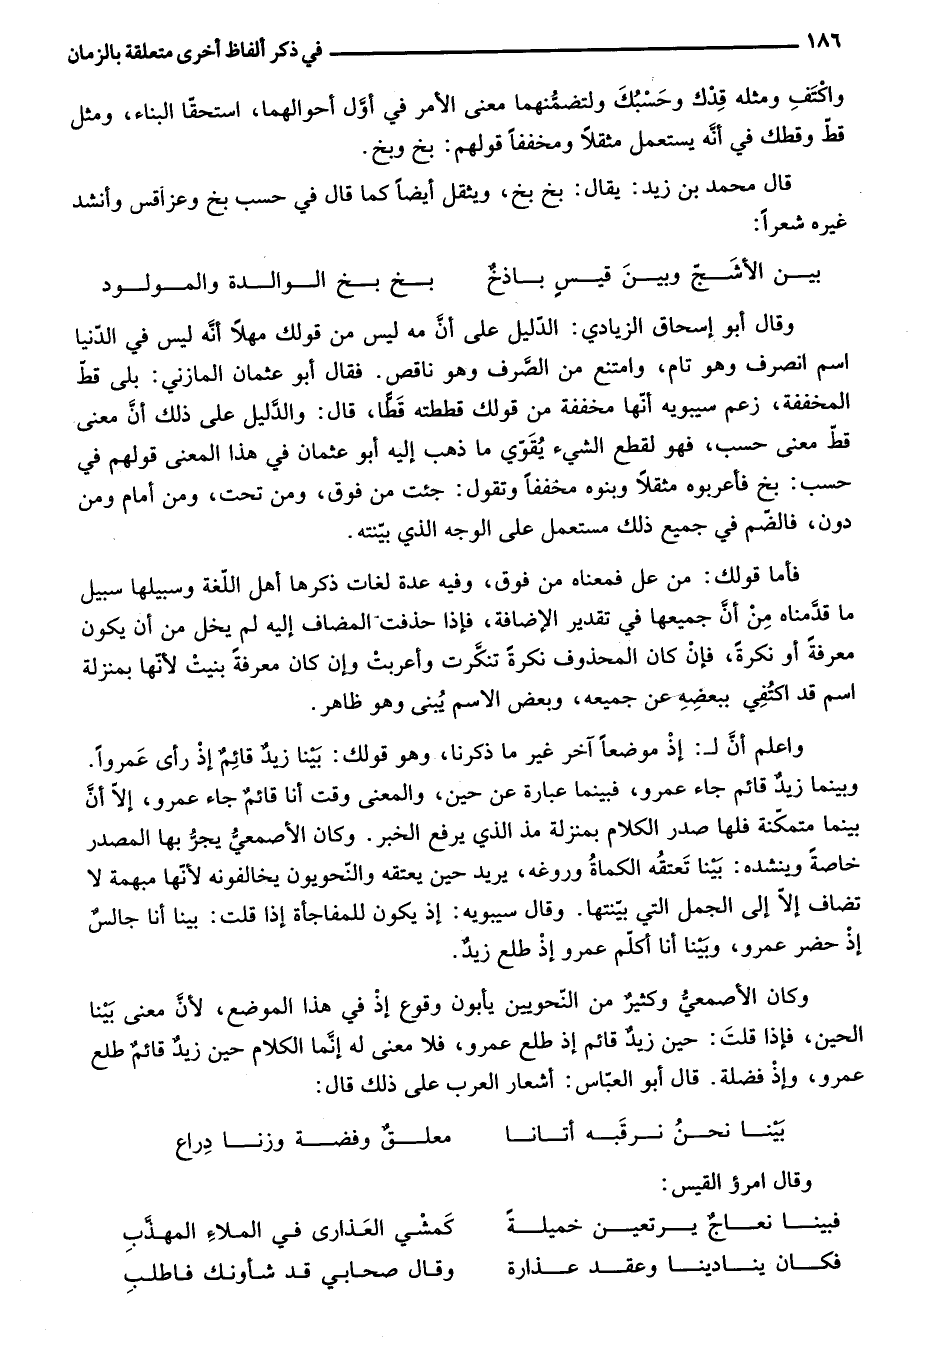 ١٨٦ في ذكر ألفاظ أخرى متعلقة بالزمان
واكْتَفِ ومثله قِدْك وحَسْبُكَ ولتضمُّنهما معنى الأمر في أوَّل أحوالهما، استحقّا البناء، ومثل
قطّ وقطك في أنَّه يستعمل مثقلاً ومخففاً قولهم: بخ وبخ.
قال محمد بن زيد: يقال: بخ بخ، ويثقل أيضاً كما قال في حسب بخ وعزاقس وأنشد
غيره شعراً:
بيـن الأشَـجّ وبيـنَ قيـسٍ بـاذخٌ بـخ بـخ الـوالـدة والمـولـود
وقال أبو إسحاق الزيادي: الدّليل على أنَّ مه ليس من قولك مهلاً أنَّه ليس في الدّنيا
اسم انصرف وهو تام، وامتنع من الصَّرف وهو ناقص. فقال أبو عثمان المازني: بلى قطّ
المخففة، زعم سيبويه أنّها مخففة من قولك قططته قَطًّا، قال: والدَّليل على ذلك أنَّ معنى
قطّ معنى حسب، فهو لقطع الشيء يُقَوّي ما ذهب إليه أبو عثمان في هذا المعنى قولهم في
حسب: بخ فأعربوه مثقلاً وبنوه مخففاً وتقول: جئت من فوق، ومن تحت، ومن أمام ومن
دون، فالضّم في جميع ذلك مستعمل على الوجه الذي بيّنته.
فأما قولك: من عل فمعناه من فوق، وفيه عدة لغات ذكرها أهل اللّغة وسبيلها سبيل
ما قدَّمناه مِنْ أنَّ جميعها في تقدير الإضافة، فإذا حذفت المضاف إليه لم يخل من أن يكون
معرفةً أو نكرةً، فإنْ كان المحذوف نكرةً تنكَّرت وأعربتْ وإن كان معرفةً بنيتْ لأنّها بمنزلة
اسم قد اكتُفِي ببعضِهِ عن جميعه، وبعض الاسم يُبنى وهو ظاهر.
واعلم أنَّ لـ: إذْ موضعاً آخر غير ما ذكرنا، وهو قولك: بَيْنا زيدٌ قائِمٌ إذْ رأى عَمرواً.
وبينما زيدٌ قائم جاء عمرو، فبينما عبارة عن حين، والمعنى وقت أنا قائمٌ جاء عمرو، إلاّ أنَّ
بينما متمكّنة فلها صدر الكلام بمنزلة مذ الذي يرفع الخبر. وكان الأصمعيُّ يجرُّ بها المصدر
خاصةً وينشده: بَيْنا تَعتقُه الكماةُ وروغه، يريد حين يعتقه والنّحويون يخالفونه لأنّها مبهمة لا
تضاف إلاّ إلى الجمل التي بيّنتها. وقال سيبويه: إذ يكون للمفاجأة إذا قلت: بينا أنا جالسٌ
إذْ حضر عمرو، وبَيْنا أنا أكلّم عمرو إذْ طلع زيدٌ.
وكان الأصمعيُّ وكثيرٌ من النّحويين يأبون وقوع إذْ في هذا الموضع، لأنَّ معنى بَيْنا
الحين، فإذا قلتَ: حين زيدٌ قائم إذ طلع عمرو، فلا معنى له إنَّما الكلام حين زيدٌ قائمٌ طلع
عمرو، وإذْ فضلة. قال أبو العبّاس: أشعار العرب على ذلك قال:
بَيْنـا نحـنُ نـرقَبـه أتـانـا معلـقٌ وفضـة وزنـا دِراع
وقال امرؤ القيس:
فبينـا نعـاجٌ يـرتعيـن خميلـةً كَمشْي العَذارى في الملاءِ المهذَّبِ
فكـان ينـادينـا وعقـد عـذارة وقال صحابي قد شأونك فاطلبِ